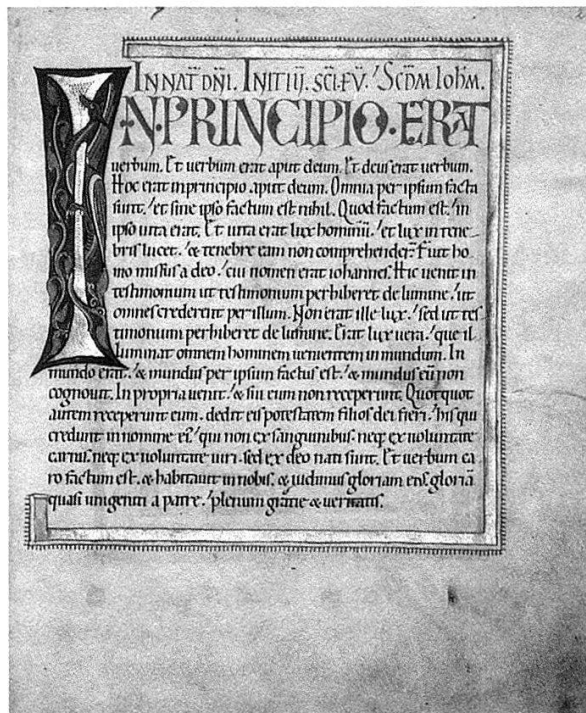 IN NAT̄ DN̄I. INITIŪ. SC̄I. EV̄. SCD̄M IOH̄M.
IN·PRINCIPIO·ERAT
uerbum. Et uerbum erat aput deum. Et deus erat uerbum.
Hoc erat in principio aput deum. Omnia per ipsum facta
sunt. et sine ipso factum est nihil. Quod factum est. in
ipso uita erat. Et uita erat lux hominū. et lux in tene
bris lucet. & tenebre eam non comprehender̄. Fuit ho
mo missus a deo. cui nomen erat iohannes. Hic uenit in
testimonium ut testimonium perhiberet de lumine. ut
omnes crederent per illum. Non erat ille lux. sed ut tes
timonium perhiberet de lumine. Erat lux uera. que il
luminat omnem hominem uenientem in mundum. In
mundo erat. & mundus per ipsum factus est. & mundus eū non
cognouit. In propria uenit. & sui eum non receperunt. Quotquot
autem receperunt eum. dedit eis potestatem filios dei fieri. his qui
credunt in nomine ei᷒. qui non ex sanguinibus. neq; ex uoluntate
carnis. neq; ex uoluntate uiri. sed ex deo nati sunt. Et uerbum ca
ro factum est. & habitauit in nobis. & uidimus gloriam ei᷒. gloriā
quasi unigeniti a patre. plenum gratie & ueritatis.